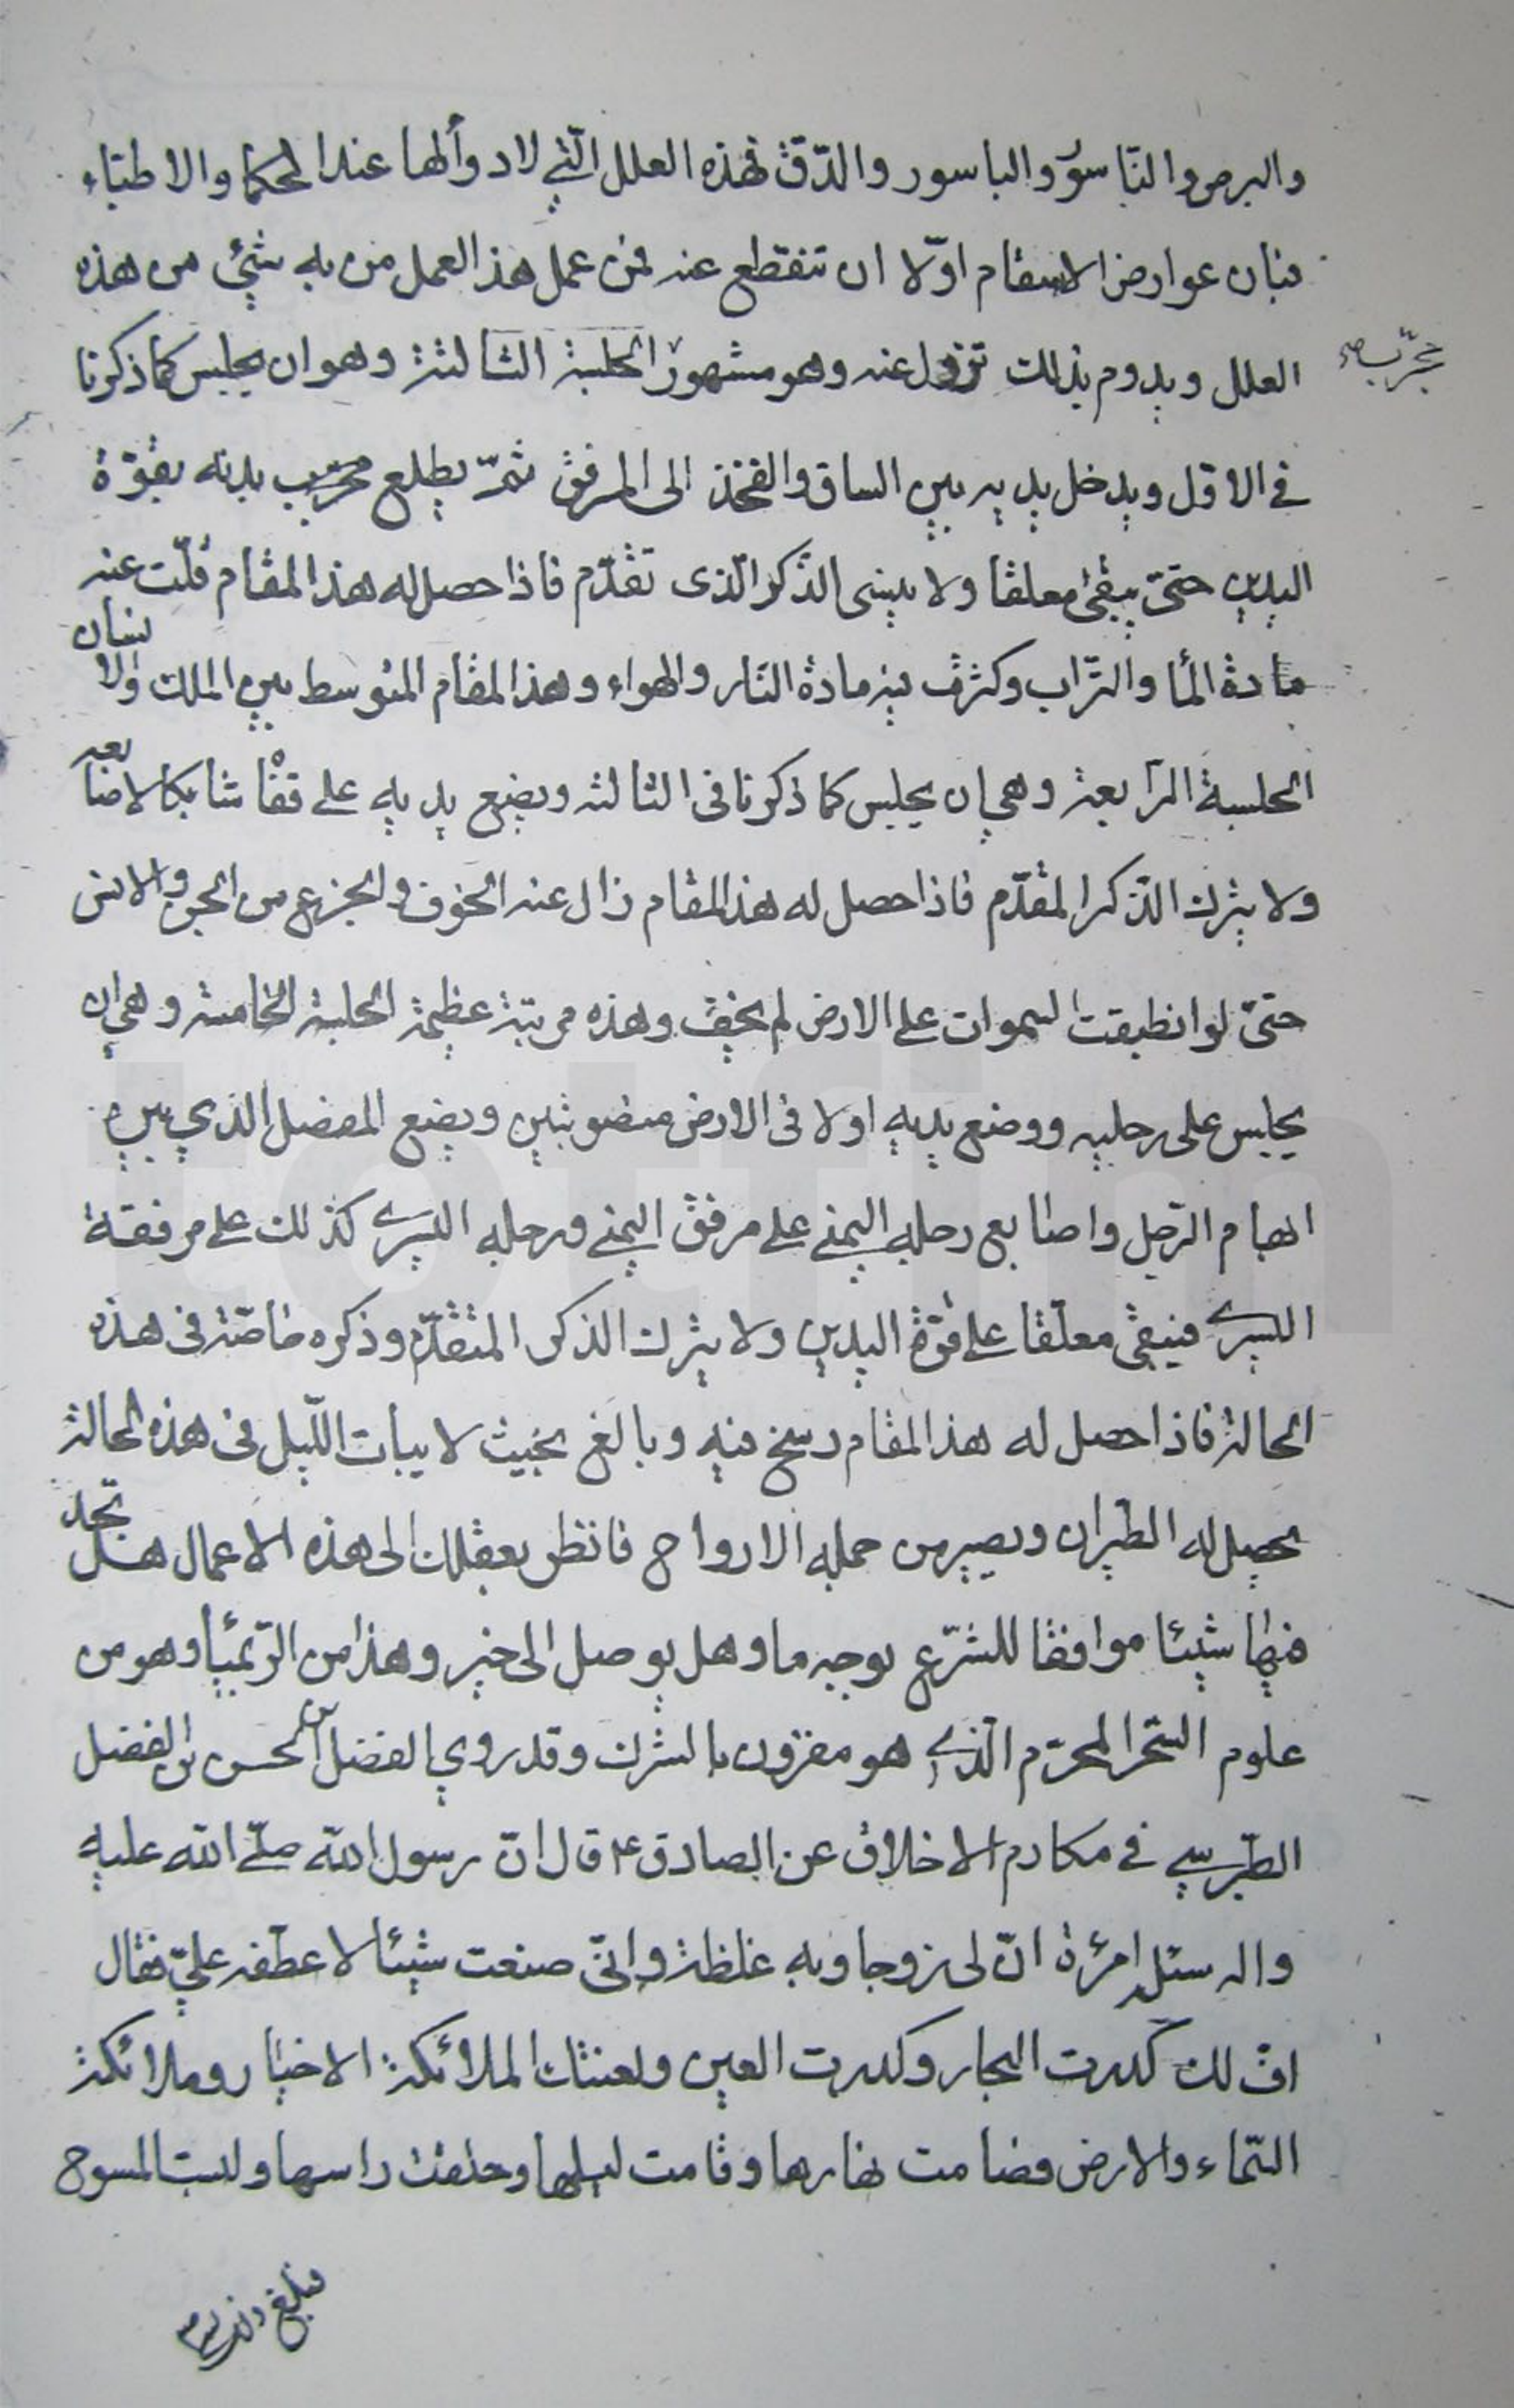 والبرص والنّاسور والباسور والدّق فهذه العلل الّتي لا دوألها عند الحكما والاطبّاء
فبان عوارض الاسقام اوّلا ان تنقطع عنه فمن عمل هذ العمل من به شيئ من هذه
العلل ويدوم بذلك تزول عنه وهو مشهور الجلسة الثالثة وهو ان يجلس كما ذكرنا
مجرّب صح
في الاول ويدخل يديه بين الساق والفخذ الى المرفق ثمّ يطلع بدنه بقوّة
اليدين حتىّ يبقى معلقا ولا ينسى الذّكر الّذى تقدّم فاذا حصل له هذ المقام قلّت عنه
مادة المأ والترّاب وكثرت فيه مادة النّار والهواء وهذ المقام المتوسط بين الملك والانسان
الجلسة الرّابعة وهي ان يجلس كما ذكرنا فى الثالثه ويضع يديه على قفاه شابكا لاصابعه
ولا يترك الذّكر المقدّم فاذا حصل له هذ المقام زال عنه الخوف والجزع من الجن والانس
حتىّ لو انطبقت السموات على الارض لم يخف وهذه مرتبة عظيمة الجلسة الخامسة وهي ان
يجلس على رجليه ووضع يديه اولا فى الارض منصوبتين ويضع المفصل الذي بين
ابهام الرّجل واصابع رجله اليمنى على مرفق اليمنى ورجله اليسرى كذلك على مرفقة
اليسرى فيبقى معلّقا على قوّة اليدين ولا يترك الذكر المتقدّم وذكره خاصّة فى هذه
الحالة فاذا حصل له هذ المقام رسخ فيه وبالغ بحيث لا يبات اللّيل فى هذه الحالة
يحصل له الطيران ويصير من جمله الارواح فانظر بعقلك الى هذه الاعمال هل تجد
فيها شيئا موافقا للشرّع بوجه ما وهل يوصل الى خير وهذا من الرّيميأ وهو من
علوم السّحر المحرّم الّذى هو مقرون بالشرك وقد روي الفضل بن الحسن بن الفضل
الطبرسي في مكارم الاخلاق عن الصادق ع قال انّ رسول الله صلّى الله عليه
واله سئله امرئة انّ لى زوجا وبه غلظة وانّى صنعت شيئا لاعطفه عليّ فقال
اف لك كدرت البحار وكدرت العين ولعنتك الملائكة الاخيار وملائكة
السّماء والارض فصامت نهارها وقامت ليلها وحلقت راسها ولبست المسوح